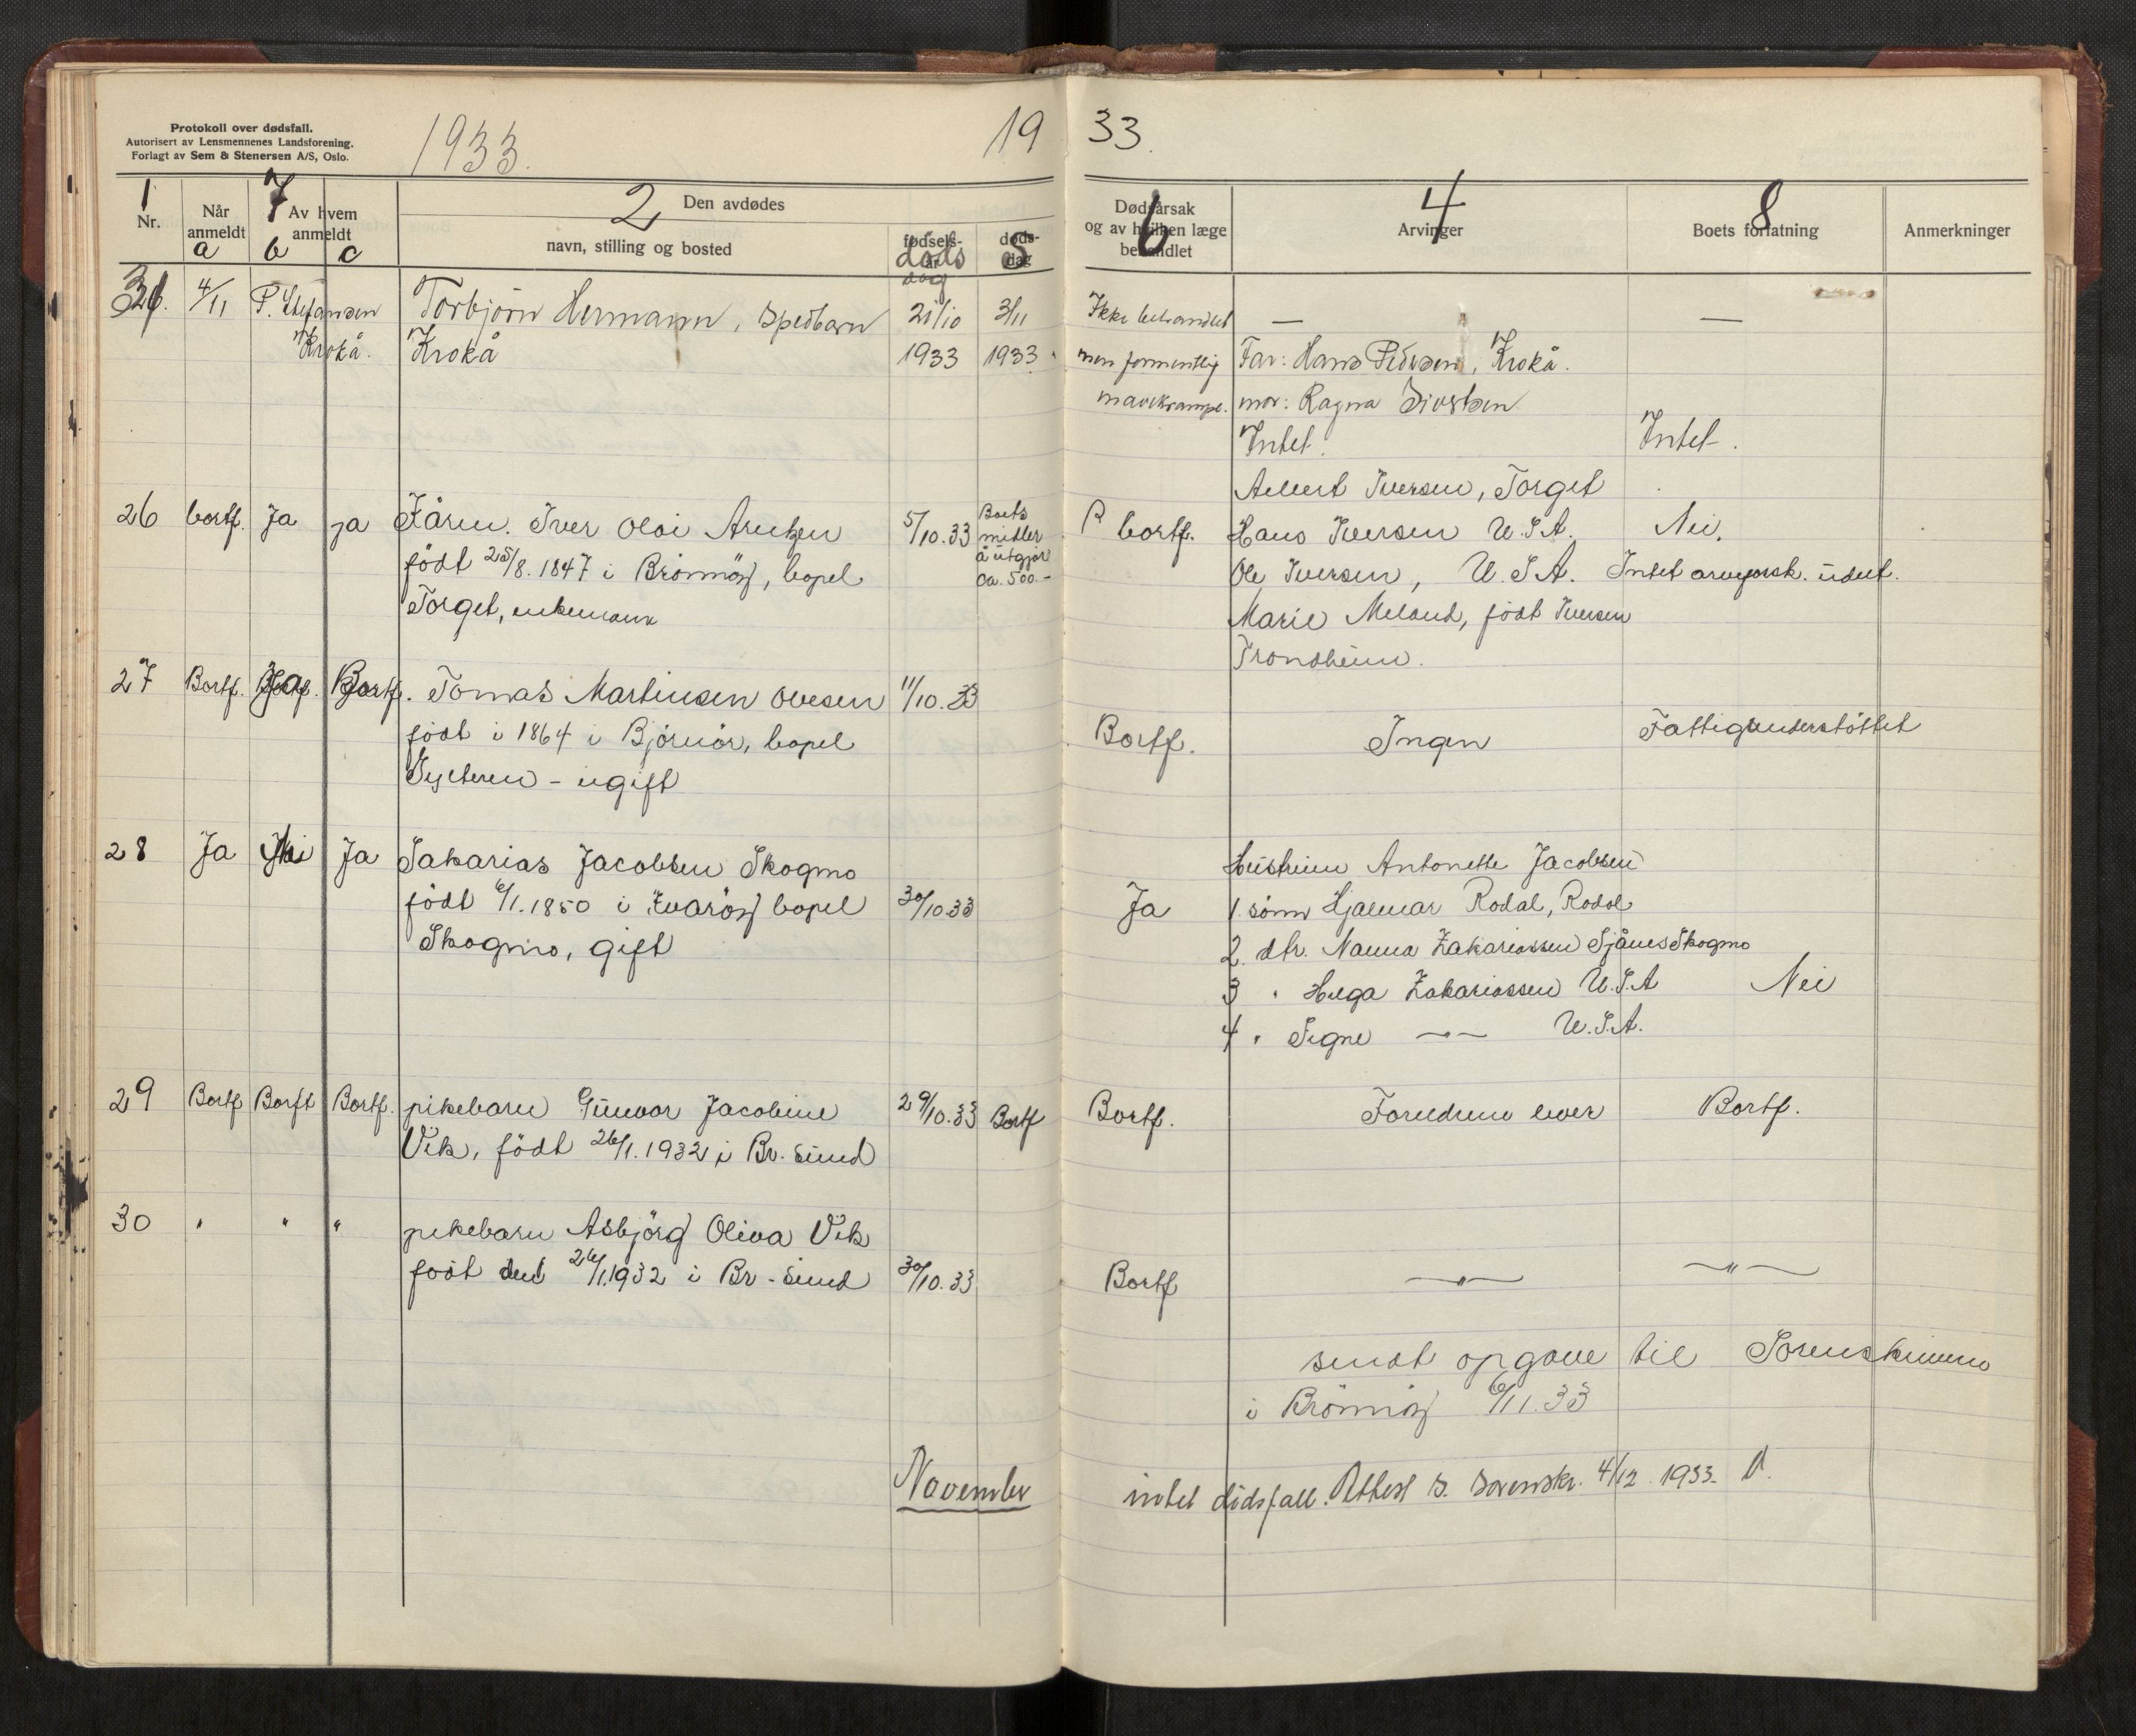 Protokoll over dødsfall.
Autorisert av Lensmennenes Landsforening.
Forlagt av Sem & Stenersen A/S, Oslo.
1933.
19 33.
1 7 2 4 6 8
Nr. Når anmeldt Av hvem anmeldt Den avdødes
navn, stilling og bosted fødsels- år døds- dag
a b c døds dag 5
Dødsårsak og av hvilken læge behandlet Arvinger Boets forfatning Anmerkninger
4/11 P. Torbjörn Hermann, spedbarn 21/10 3/11 Ikke behandlet — —
Krokå. Krokå 1933 1933. men formentlig Far: Hans Pedersen, Krokå.
mavekrampe. mor: Ragna Sivertsen
Intet. Intet.
Albert Iversen, Torget
26 bortf. Ja ja Fårm. Iver Oloi Arntzen 5/10.33 Boets midler å utgjør ca. 500.- bortf. Hans Iversen U.S.A. Nei.
födt 25/8. 1847 i Brönnöy, bopel Ole Iversen, U.S.A. Intet arveforsk. udbet.
Torget, enkemann Marie Meland, födt Iversen
Trondheim.
27 Bortf. Ja Bortf. Tomas Martinsen Ovesen 11/10.33
födt i 1864 i Björnör, bopel Bortf. Ingen Fattigunderstöttet
- ugift
28 Ja Nei Ja Sakarias Jacobsen Skogmo Hustruen Antonette Jacobsen
födt 6/1. 1850 i bopel 30/10.33 Ja 1. sönn Hjalmar Rodal, Rodal
Skogmo, gift 2. dtr. Nanna Zakariassen Skogmo
3 " Helga Zakariassen U.S.A Nei
4 " Signe —"— U.S.A.
29 Bortf Bortf Bortf. pikebarn Gunvor Jacobine 29/10.33 Bortf Bortf. Foreldrene lever Bortf.
Vik, födt 26/1. 1932 i Br. sund
30 " " " pikebarn Asbjörg Oliva Vik
födt den 26/1.1932 i Br-sund 30/10.33 Bortf —"— —"—
sendt opgave til Sorenskriveren
i Brönnöy 6/11.33
November intet dödsfall. Attest s. sorenskr. 4/12 1933.